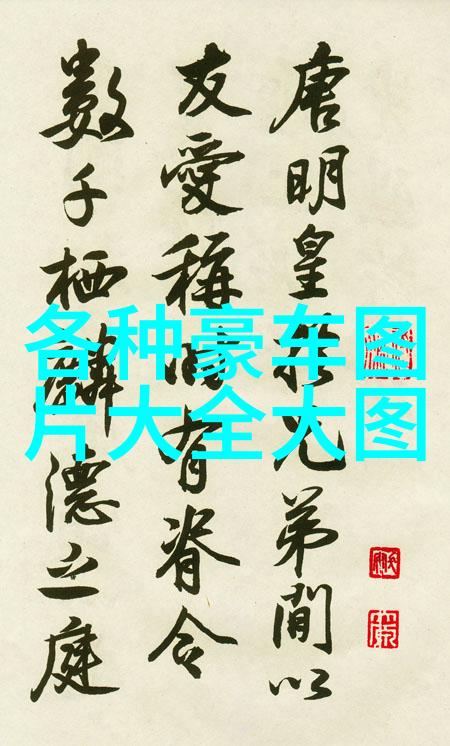 唐明皇於兄弟間以
友愛稱時有脊令
數千栖麟德之庭
各种豪车图
片大全大图